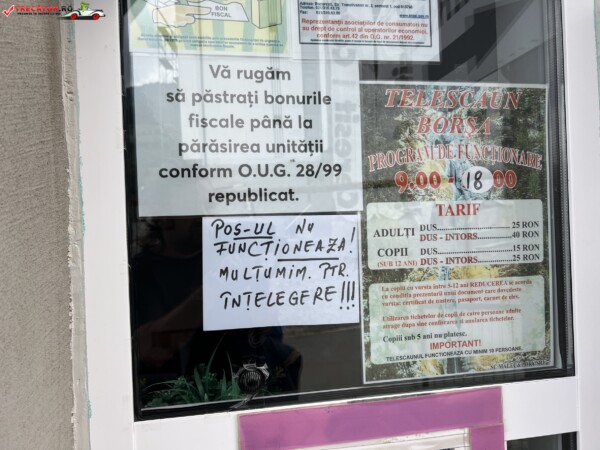 TRECATOR.RO
BON
FISCAL
Reprezentanții asociațiilor de consumatori nu
au drept de control al operatorilor economici,
conform art.13 din O.G. nr. 21/1992
Vă rugăm
să păstrați bonurile
fiscale până la
părăsirea unității
conform O.U.G. 28/99
republicat.
POS-UL NU
FUNCȚIONEAZĂ!
MULȚUMIM. PTR.
ÎNȚELEGERE!!!
TELESCAUN
BORȘA
PROGRAM DE FUNCȚIONARE
9.00 - 18 00
TARIF
ADULȚI DUS..............25 RON
DUS - INTORS..........40 RON
COPII DUS..............15 RON
(SUB 12 ANI) DUS - INTORS..........25 RON
La copiii cu varsta intre 5-12 ani REDUCEREA se acorda
cu conditia prezentarii unui document care dovedeste
varsta: certificat de nastere, pasaport, carnet de elev.
Utilizarea tichetelor de copil de catre persoane adulte
atrage dupa sine confiscarea si anularea tichetelor.
Copiii sub 5 ani nu platesc.
IMPORTANT!
TELESCAUNUL FUNCTIONEAZA CU MINIM 10 PERSOANE.